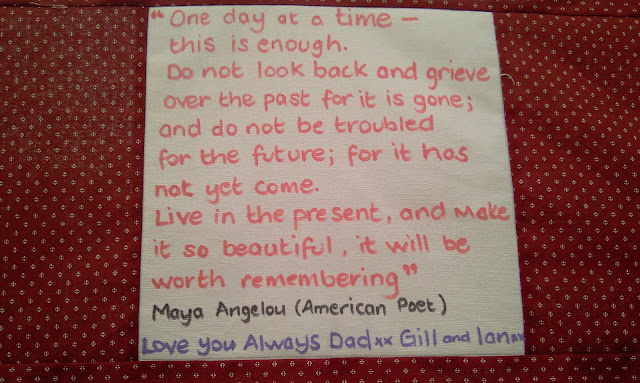 “One day at a time –
this is enough.
Do not look back and grieve
over the past for it is gone;
and do not be troubled
for the future; for it has
not yet come.
Live in the present, and make
it so beautiful, it will be
worth remembering”
Maya Angelou (American Poet)
Love you Always Dad xx Gill and Ian xx